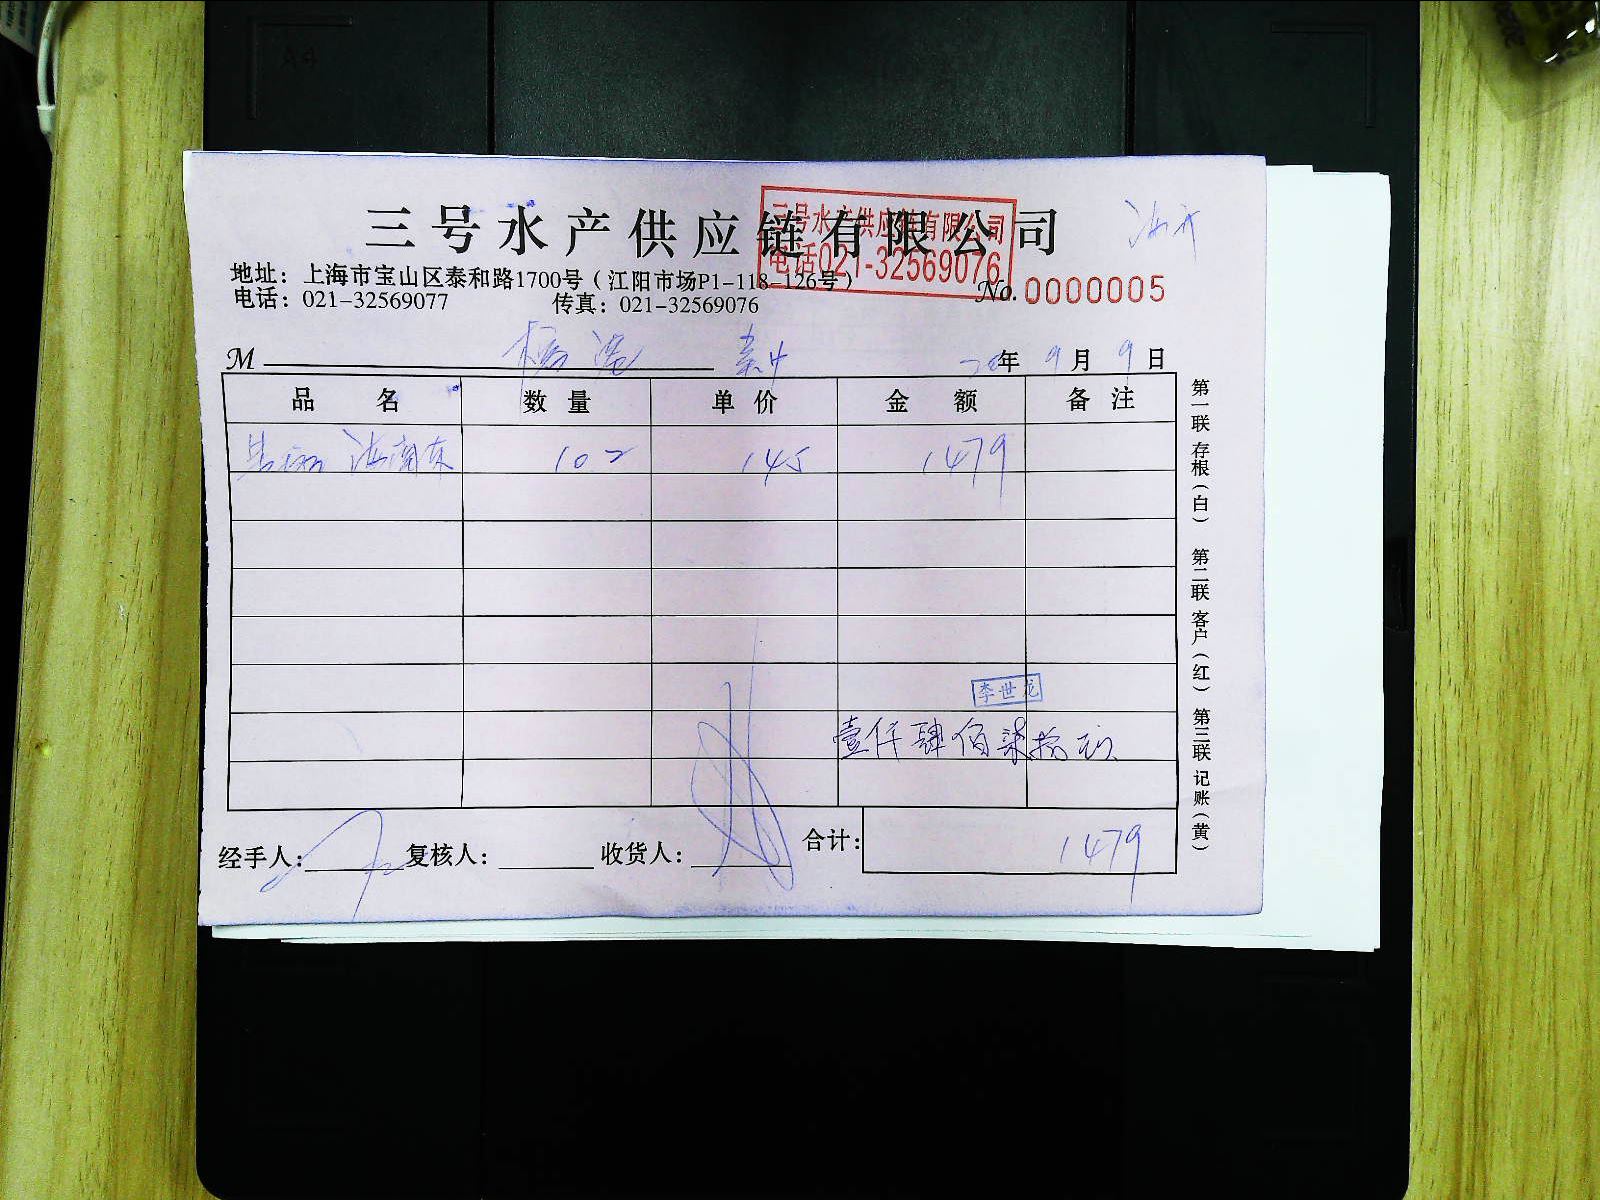 三号水产供应链有限公司
三号水产供应链有限公司
电话021-32569076
地址：上海市宝山区泰和路1700号（江阳市场P1-118-126号）
电话：021-32569077 传真：021-32569076
No. 0000005
M 年 9月 9日
品 名 数 量 单 价 金 额 备 注
海南东 102 145 1479
李世龙
壹仟肆佰柒拾
经手人： 复核人： 收货人： 合计： 1479
第一联 存根（白） 第二联 客户（红） 第三联 记账（黄）